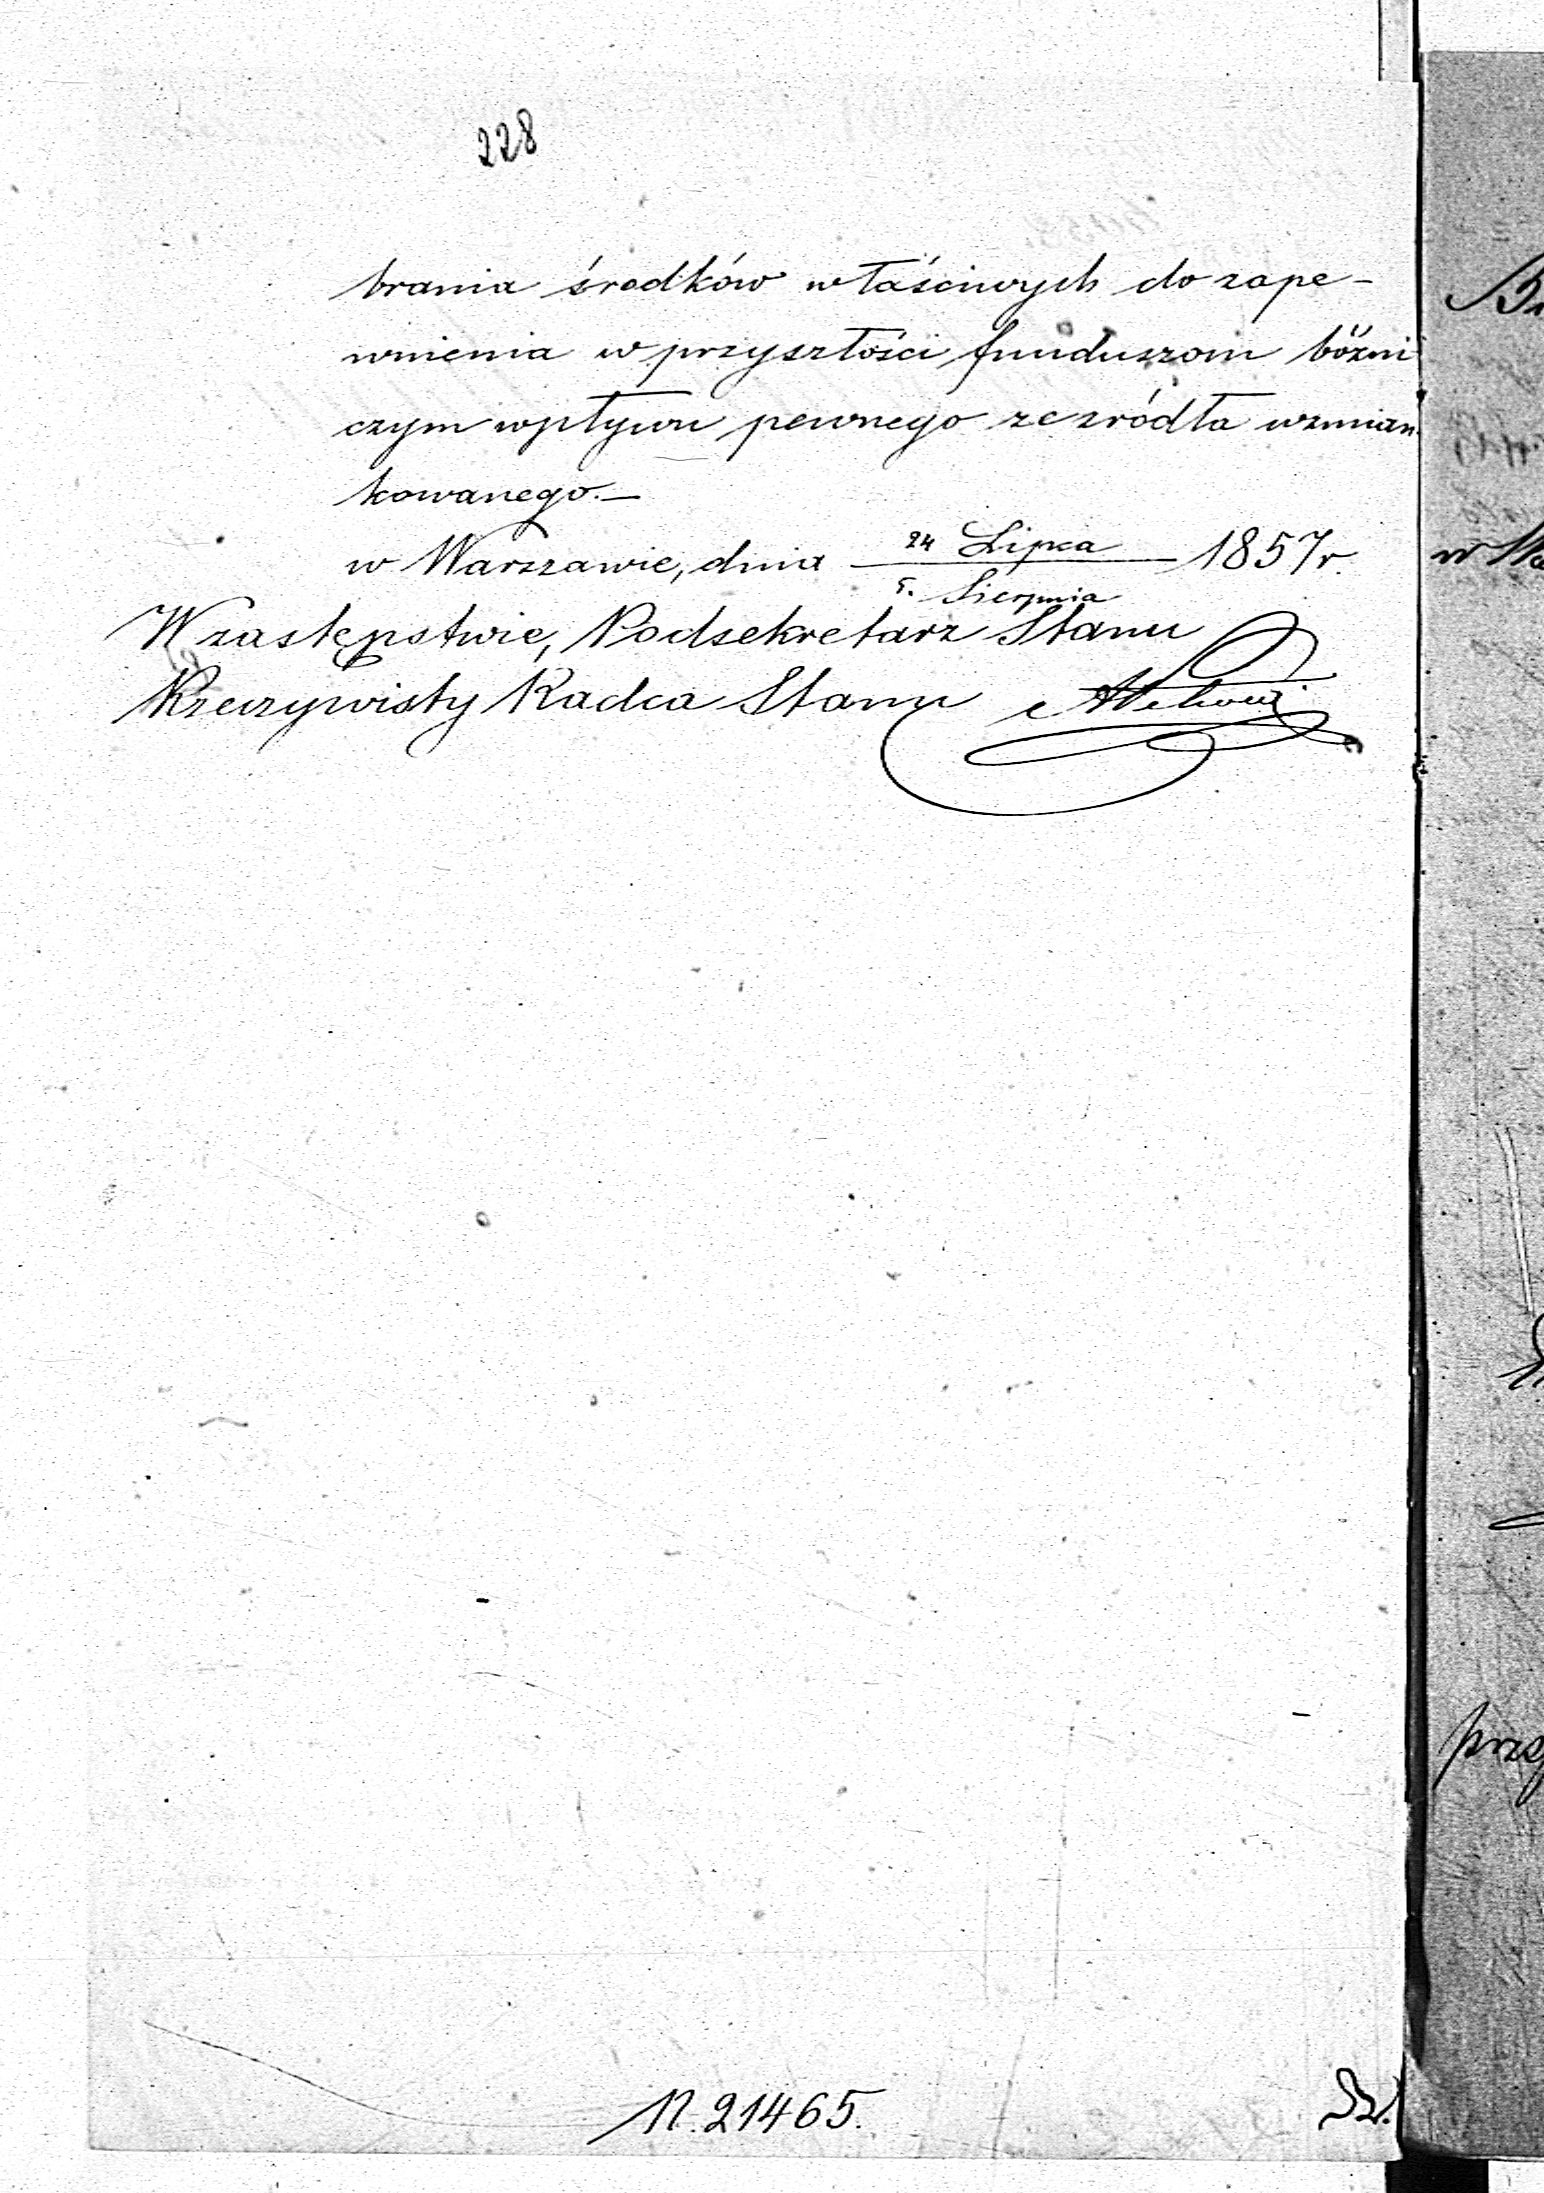 228
brania środków właściwych do zape-
wnienia w przyszłości funduszom bóżni
czym wpływu pewnego ze zródła wzmian
kowanego.—
w Warszawie, dnia 24 Lipca / 5. Sierpnia 1857 r.
W zastępstwie, Podsekretarz Stanu
Rzeczywisty Radca Stanu
N. 21465.